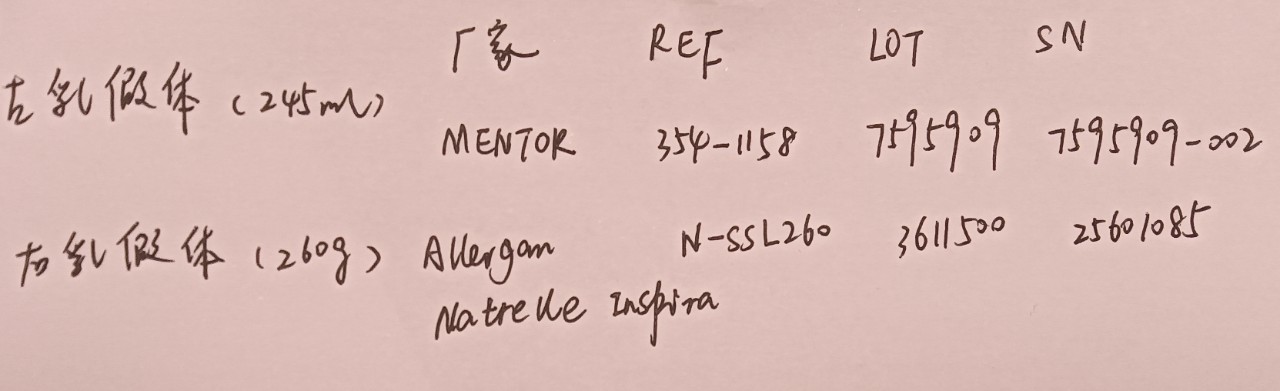 厂家 REF LOT SN
左乳假体(245ml) MENTOR 354-1158 7595909 7595909-002
右乳假体(260g) Allergan N-SSL260 3611500 25601085
Natrelle Inspira